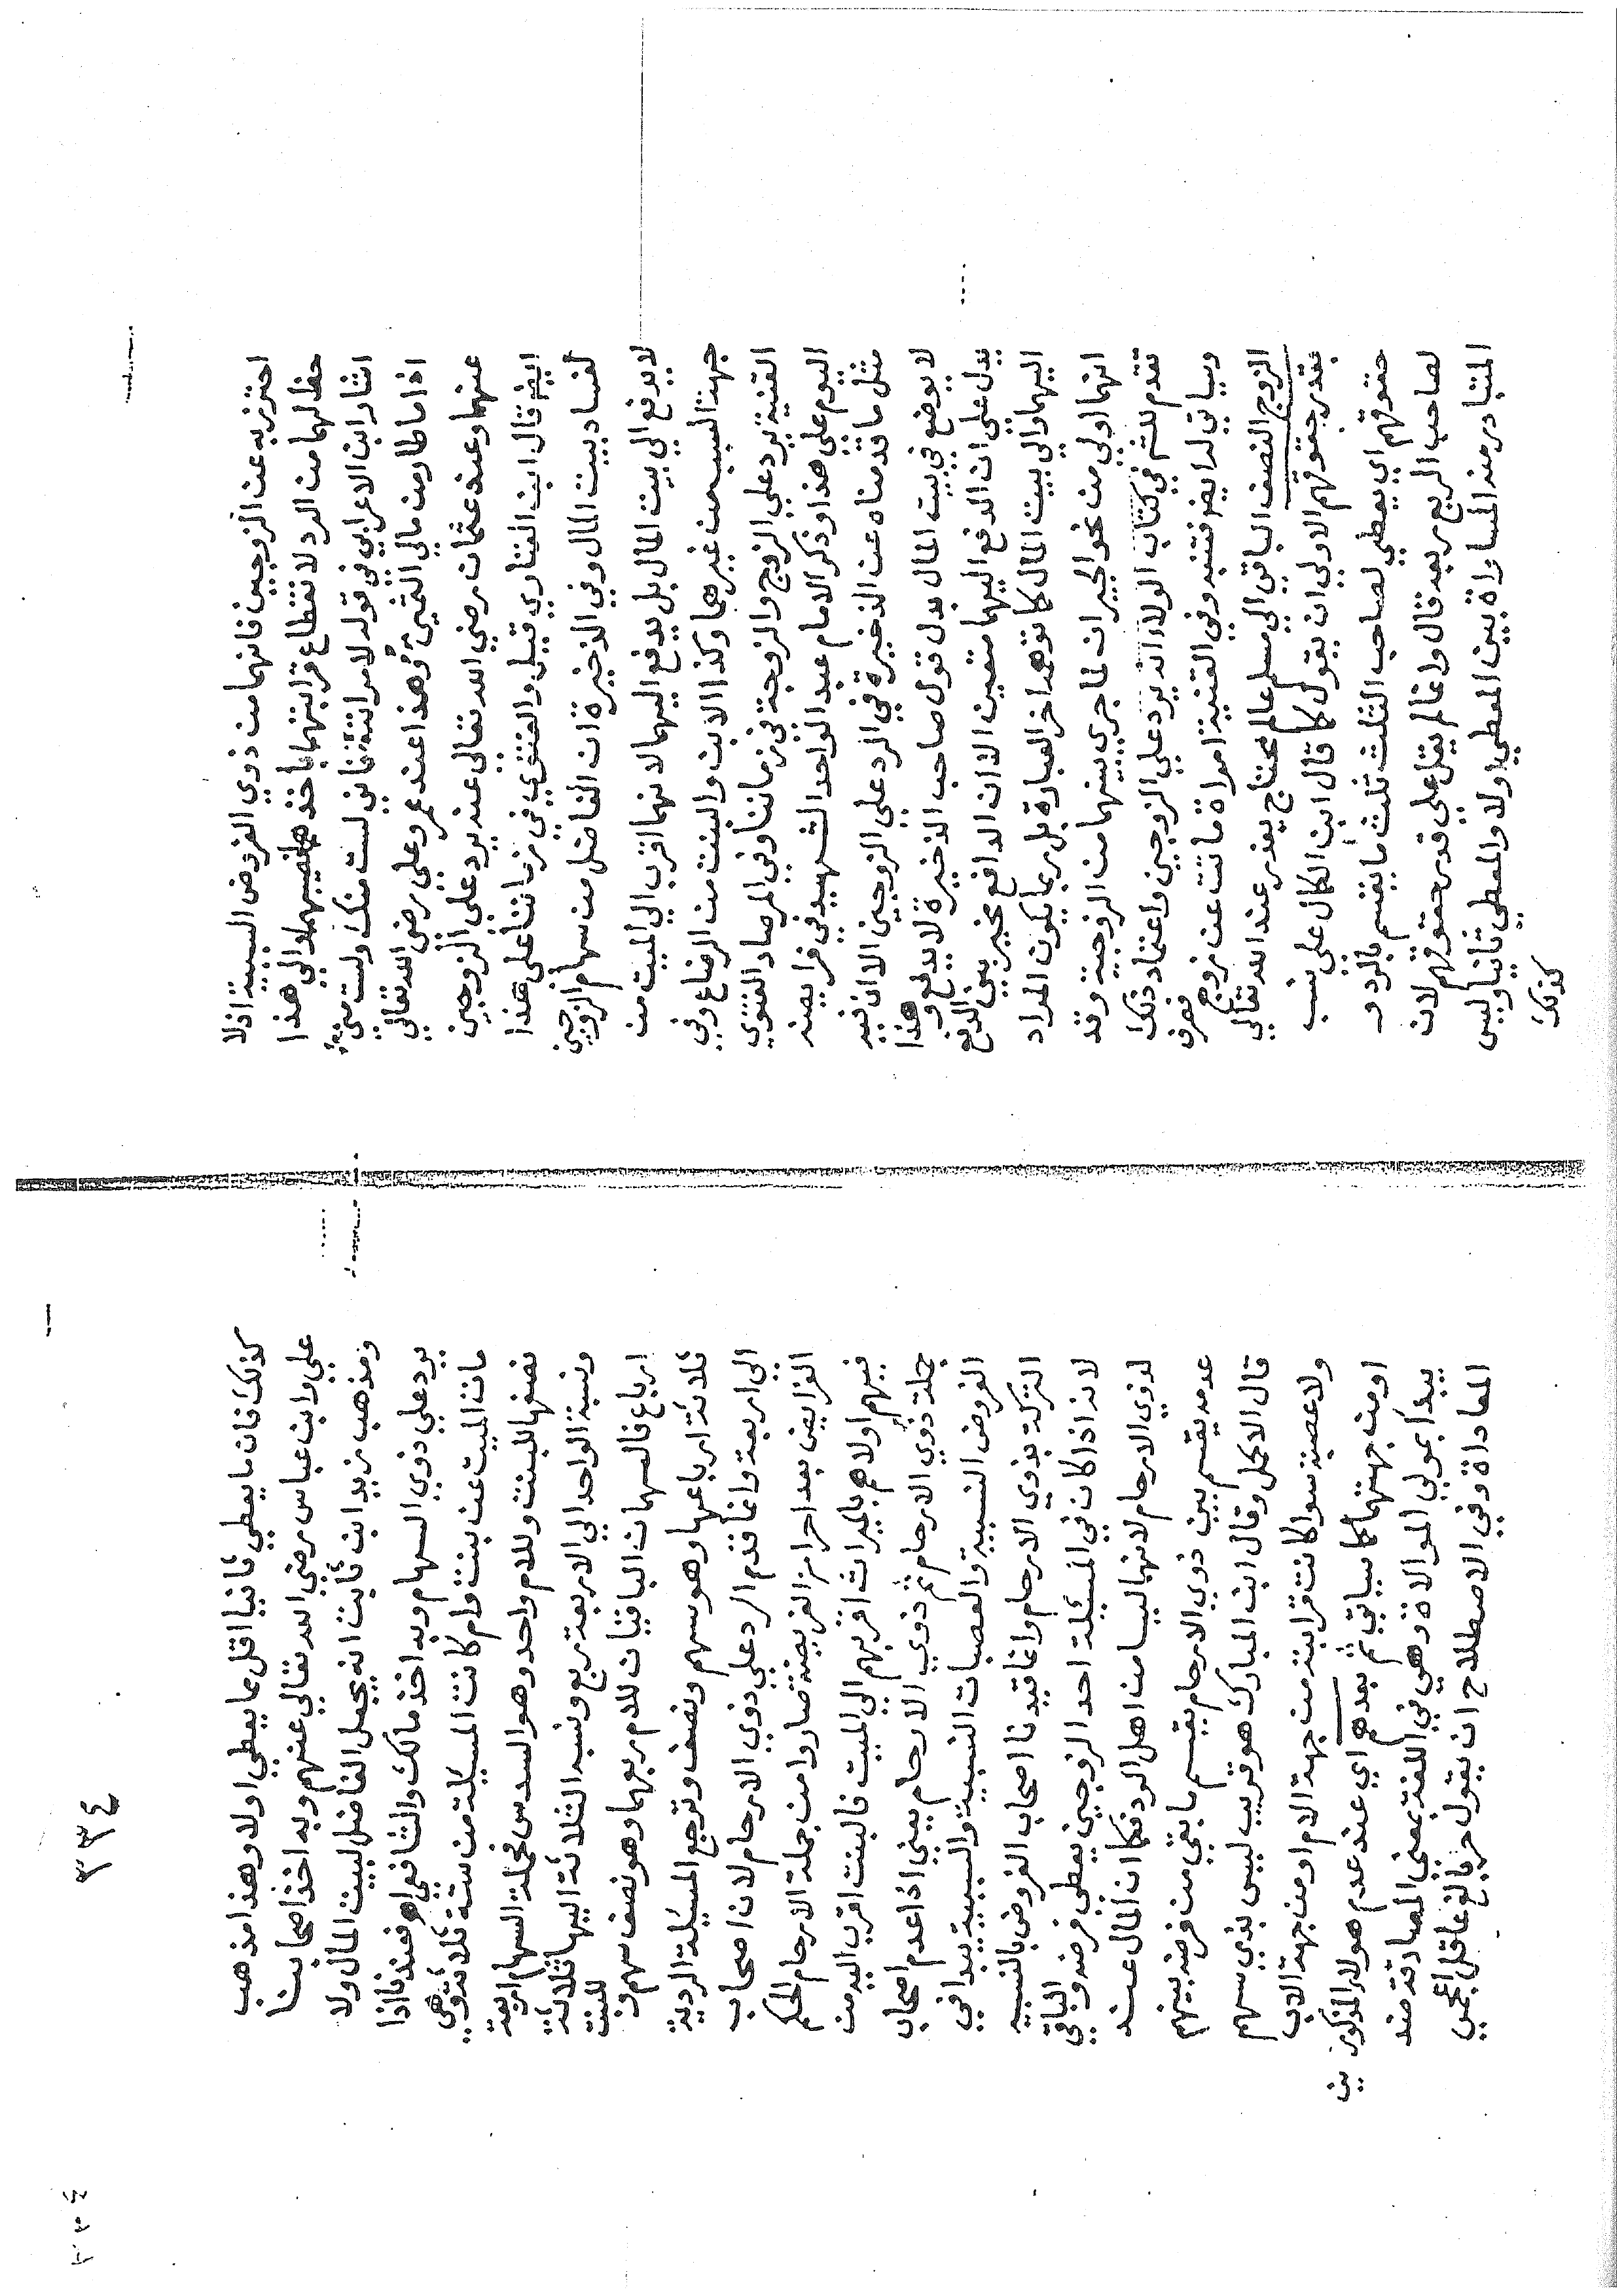 احترز به عن الزوجين فانهما من ذوي الفروض السببية اذ لا
حظ لهما من الرد لانقطاع قرابتهما باخذهما نصيبهما والي هذا
اشار ابن الاعرابي في قوله لامراته فاني لست منك ولست مني
اذا ما طار من مالي الثمين وهذا عند عمر وعلي رضي الله تعالي
عنهما وعند عثمان رضي الله تعالي عنه يرد علي الزوجين
ايضا قال ابن الفناري قيل والفتوي في زماننا علي هذا
لفساد بيت المال وفي الذخيرة ان الفاضل من سهام الزوجين
لا يدفع الي بيت المال بل يدفع اليهما لانهما اقرب الي الميت من
جهة السبب من غيرهما وكذا الابن والبنت من الرضاع وفي
القنية يرد علي الزوج والزوجة في زماننا وفي المرصاد الفتوي
اليوم علي هذا وذكر الامام عبد الواحد الشهيد في فرايضه
مثل ما قدمناه عن الذخيرة في الرد علي الزوجين الا ان فيه
لا يوضع في بيت المال بدل قول صاحب الذخيرة لا يدفع وهذا
يدل علي ان الدفع اليهما متعين الا ان الدافع مخير بين الدفع
اليهما والي بيت المال كما توهمه اخر العبارة بل ربما يكون المراد
انهما اولي من نحو الجيران لما جري بينهما من الزوجية وقد
تقدم للشم في كتاب الولاء انه يرد علي الزوجين واعتماد ذلك
وسياتي له ايضا فتنبه وفي القنية امراة ماتت عن زوج فصرف
الزوج النصف الباقي الي مسلم عالم محتاج يعذر عند الله تعالي
بقدر حقوقهم الاولي ان يقول كما قال ابن الكمال علي نسب
حقوقهم اي يعطي لصاحب الثلث ثلث ما يقسم بالرد و
لصاحب الربع ربعه قال وانما لم يقل علي قدر حقوقهم لان
المتبادر منه المساواة بين المعطي اولا والمعطي ثانيا وليس
كذلك
٣٣٤
كذلك فان ما يعطي ثانيا اقل مما يعطي اولا وهذا مذهب
علي وابن عباس رضي الله تعالي عنهم وبه اخذ اصحابنا
ومذهب زيد ابن ثابت انه يجعل الفاضل لبيت المال ولا
يرد علي ذوي السهام وبه اخذ مالك والشافعي اهـ فعندنا اذا
مات الميت عن بنت وام كانت المسيلة من ستة ثلاثة وهي
نصفها للبنت وللام واحد وهو السدس فجملة السهام اربعة
ونسبة الواحد الي الاربعة ربع ونسبة الثلاثة اليها ثلاثة
ارباع فالسهمان الباقيان للام ربعهما وهو نصف سهم وللبنت
ثلاثة ارباعهما وهو سهم ونصف وترجع المسيلة الردية
الي اربعة وانما قدم الرد علي ذوي الارحام لان اصحاب
الفرايض بعد احراز الفريضة صاروا من جملة الارحام الحكم
فيهم اولاهم بالميراث اقربهم الي الميت فالبنت اقرب اليه من
جملة ذوي الارحام ثم ذوي الارحام يعني اذا عدم اصحاب
الفروض النسبية والعصبات النسبية والسببية يبدا في
التركة بذوي الارحام وانما قيدنا اصحاب الفروض بالنسبية
لانه اذا كان في المسيلة احد الزوجين يعطي فرضه والباقي
لذوي الارحام لانهما ليسا من اهل الرد فكما ان المال عند
عدمه يقسم بين ذوي الارحام يقسم ما بقي من فرضه بينهم
قال الاكمل وقال ابن المبارك هو قريب ليس بذي سهم
ولا عصبة سوا كانت قرابته من جهة الام او من جهة الاب
او من جهتهما كما سياتي ثم بعدهم اي عند عدم هولاء المذكورين
يبدا بمولي الموالاة وهي في اللغة بمعني المصادقة ضد
المعاداة وفي الاصطلاح ان يقول حر بالغ عاقل اعجمي